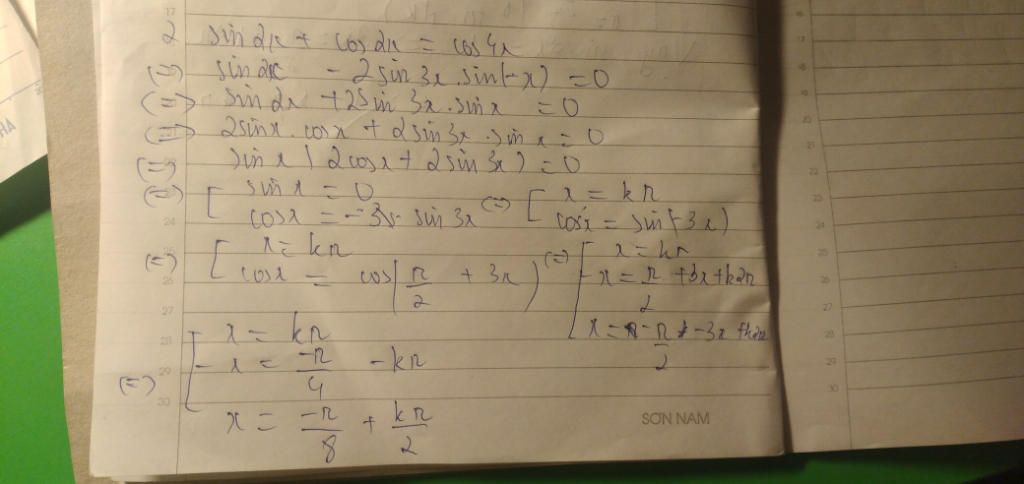 2 sin2x + cos2x = cos4x
(=) sin2x - 2sin3x.sin(-x) = 0
(=) sin2x + 2sin3x.sinx = 0
(=) 2sinx.cosx + 2sin3x.sinx = 0
(=) sinx(2cosx + 2sin3x) = 0
(=) [ sinx = 0 (=) [ x = kπ
cosx = - sin3x cosx = sin(-3x)
(=) [ x = kπ (=) [ x = kπ
cosx = cos(π/2 + 3x) x = π/2 + 3x + k2π
x = -π/2 - 3x + k2π
(=) [ x = kπ
x = -π/4 - kπ
x = -π/8 + kπ/2
SƠN NAM